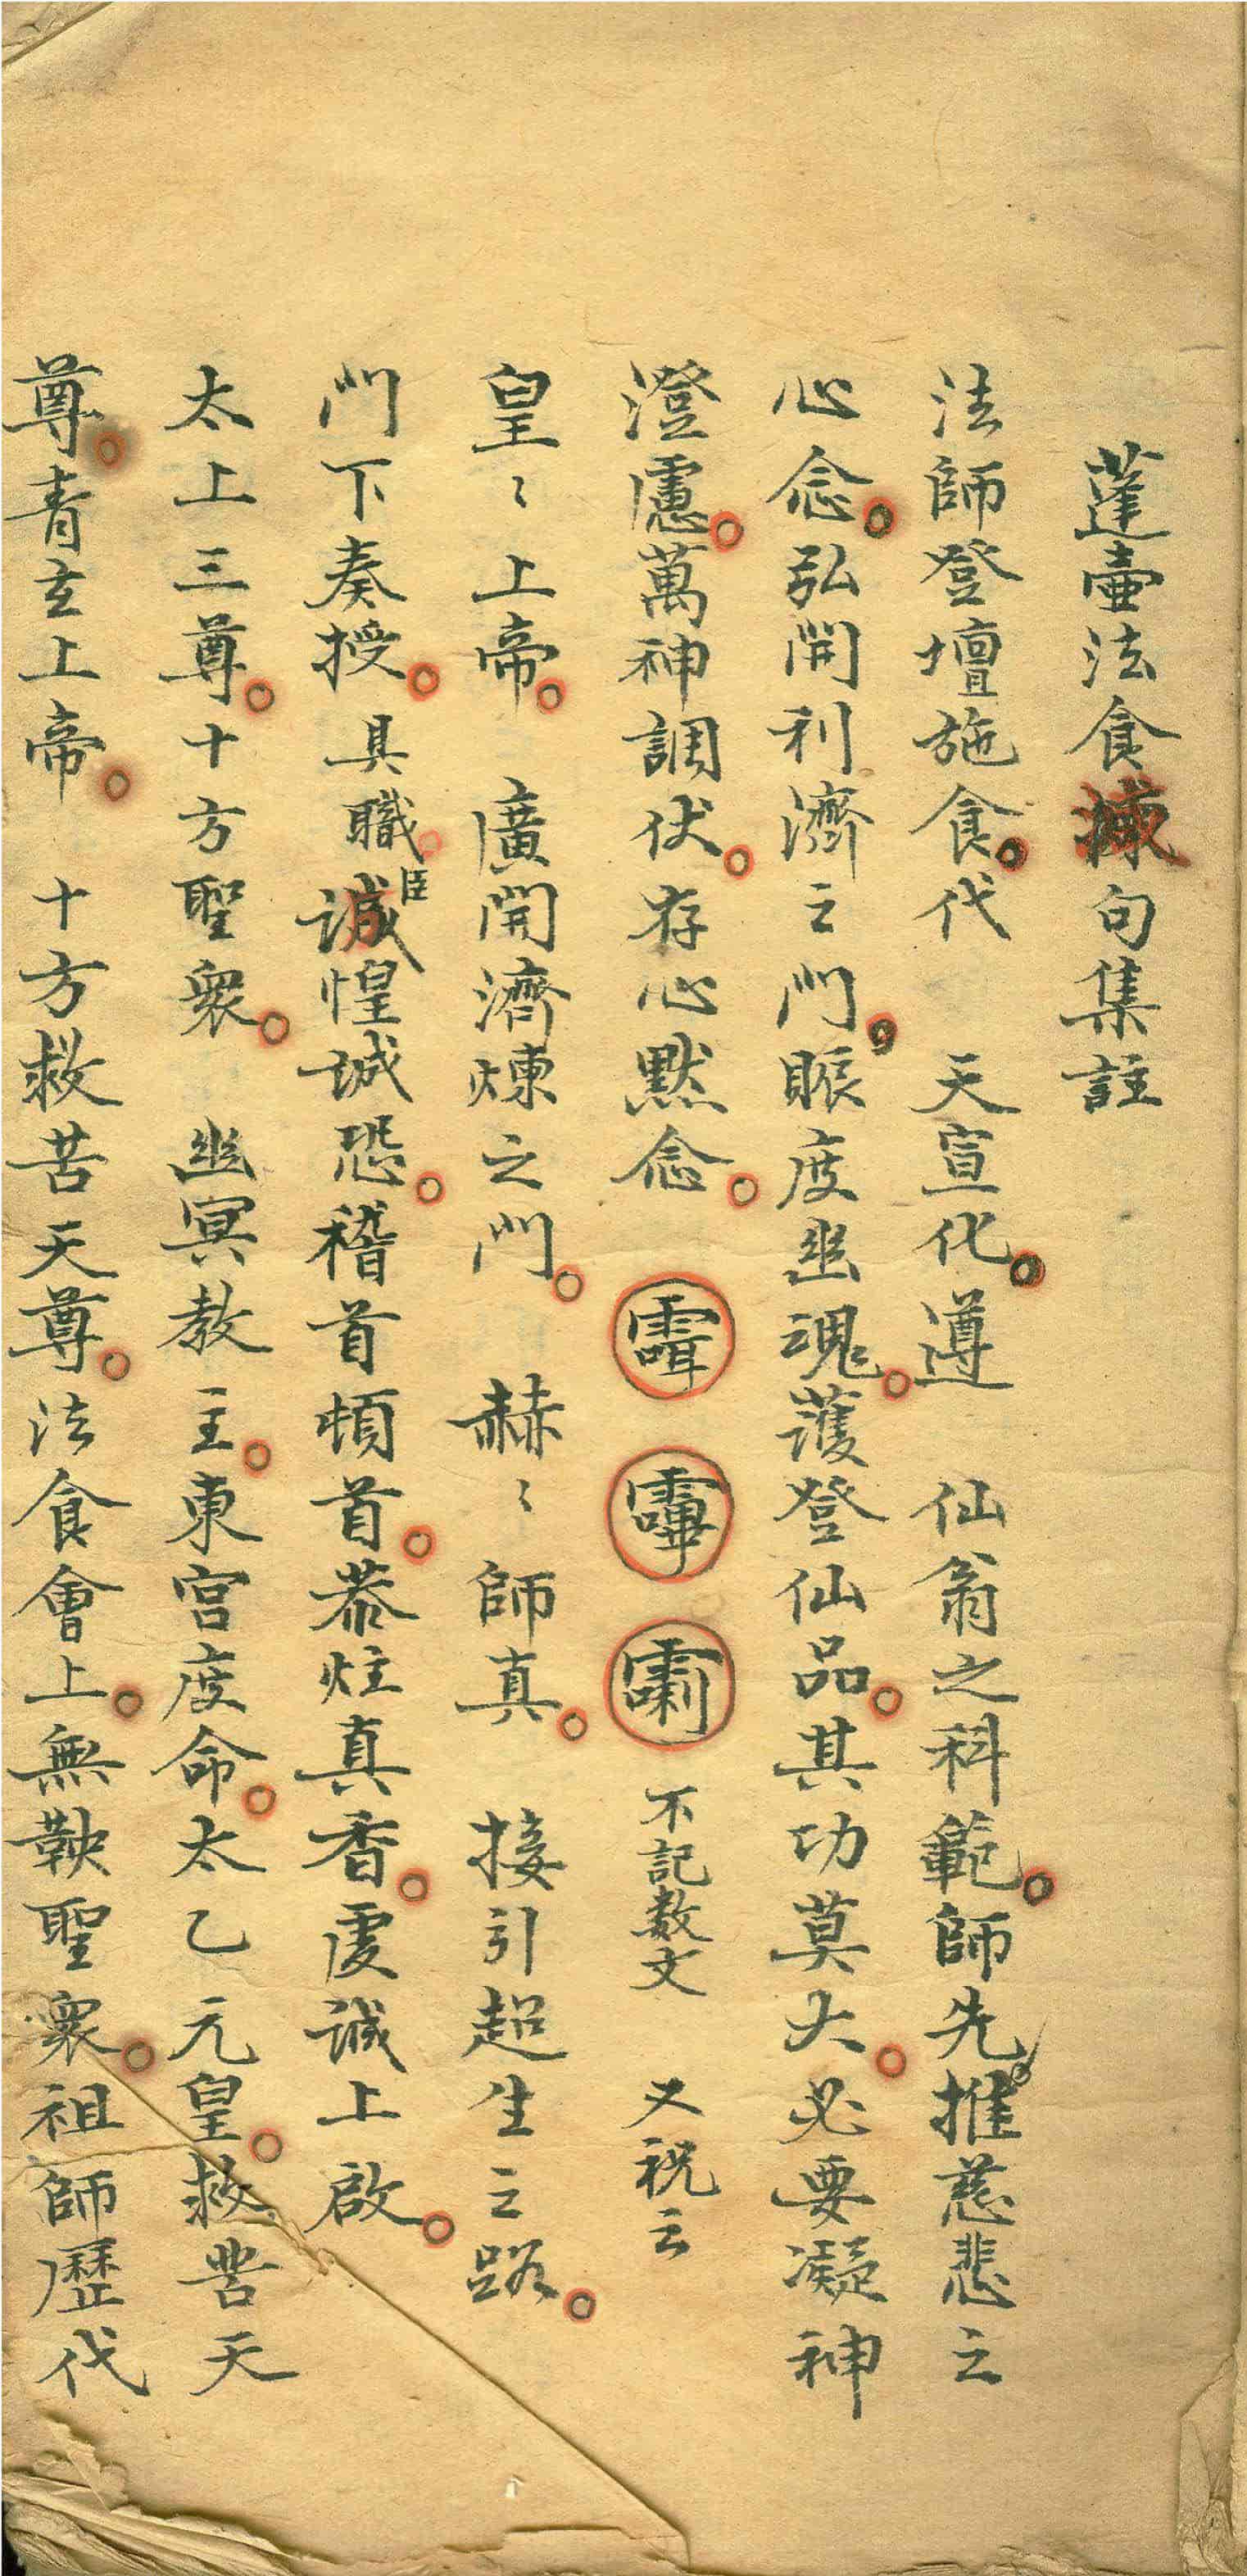 蓬壷法食減句集註
法師登壇施食代 天宣化遵 仙翁之科範師先推慈悲之
心念弘開利濟之門賑度幽魂護登仙品其功莫大必要凝神
澄慮萬神調伏存心默念 不記数文 又祝云
皇〻上帝 廣開濟煉之門 赫〻師真 接引超生之路
門下奏授具職臣誠惶誠恐稽首頓首恭炷真香虔誠上啟
太上三尊十方聖衆 幽冥教主東宮度命太乙元皇救苦天
尊青玄上帝 十方救苦天尊法食會上無鞅聖衆祖師歷代